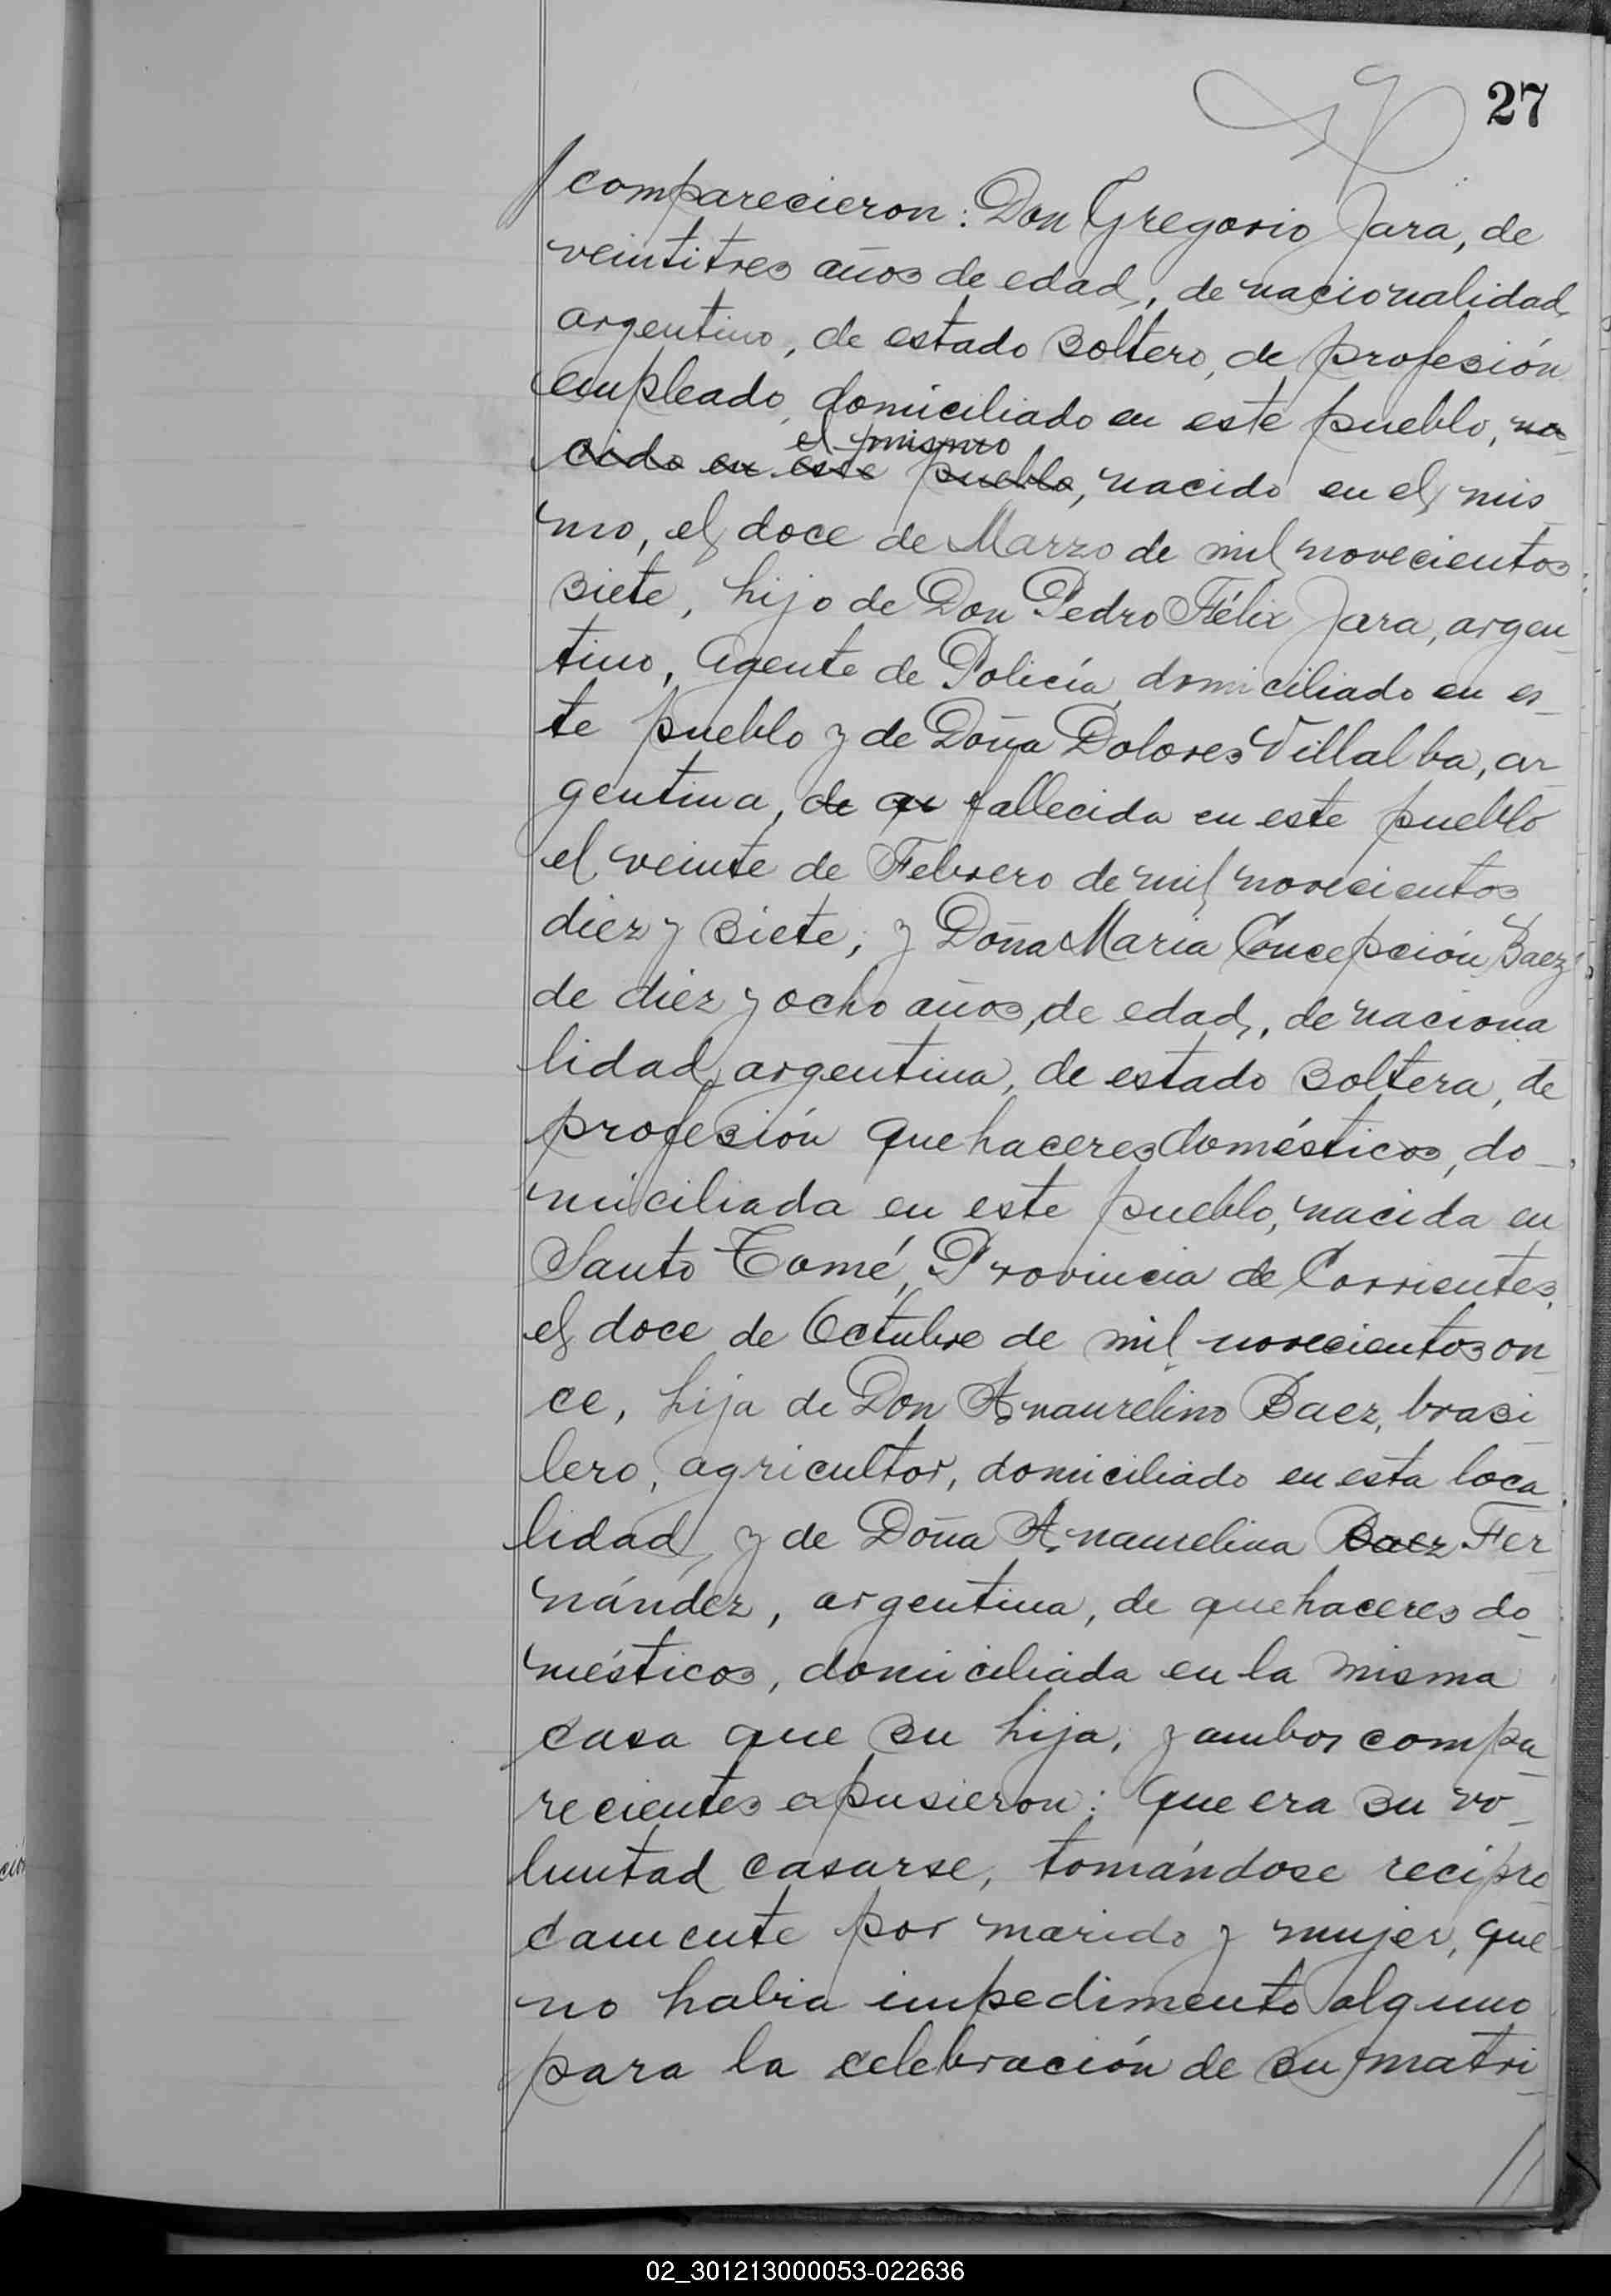 27
comparecieron: Don Gregorio Jara, de
veintitres años de edad, de nacionalidad
argentino, de estado soltero, de profesión
empleado, domiciliado en este pueblo, na
el mismo
cido en este pueblo, nacido en el mis
mo, el doce de Marzo de mil novecientos
siete, hijo de Don Pedro Félix Jara, argen
tino, Agente de Policía, domiciliado en es
te pueblo y de Doña Dolores Villalba, ar
gentina, de qu fallecida en este pueblo
el veinte de Febrero de mil novecientos
diez y siete; y Doña Maria Concepción Baez
de diez y ocho años, de edad, de naciona
lidad argentina, de estado soltera, de
profesión quehaceres domésticos, do
miciliada en este pueblo, nacida en
Santo Tomé, Provincia de Corrientes,
el doce de Octubre de mil novecientos on
ce, hija de Don Anaurelino Baez, brasi
lero, agricultor, domiciliado en esta loca
lidad, y de Doña Anaurelina Baez Fer
nández, argentina, de quehaceres do
mésticos, domiciliada en la misma
casa que su hija; y ambos compa
recientes expusieron: Que era su vo
luntad casarse, tomándose recipro
camente por marido y mujer, que
no habia impedimento alguno
para la celebración de su matri
02_301213000053-022636